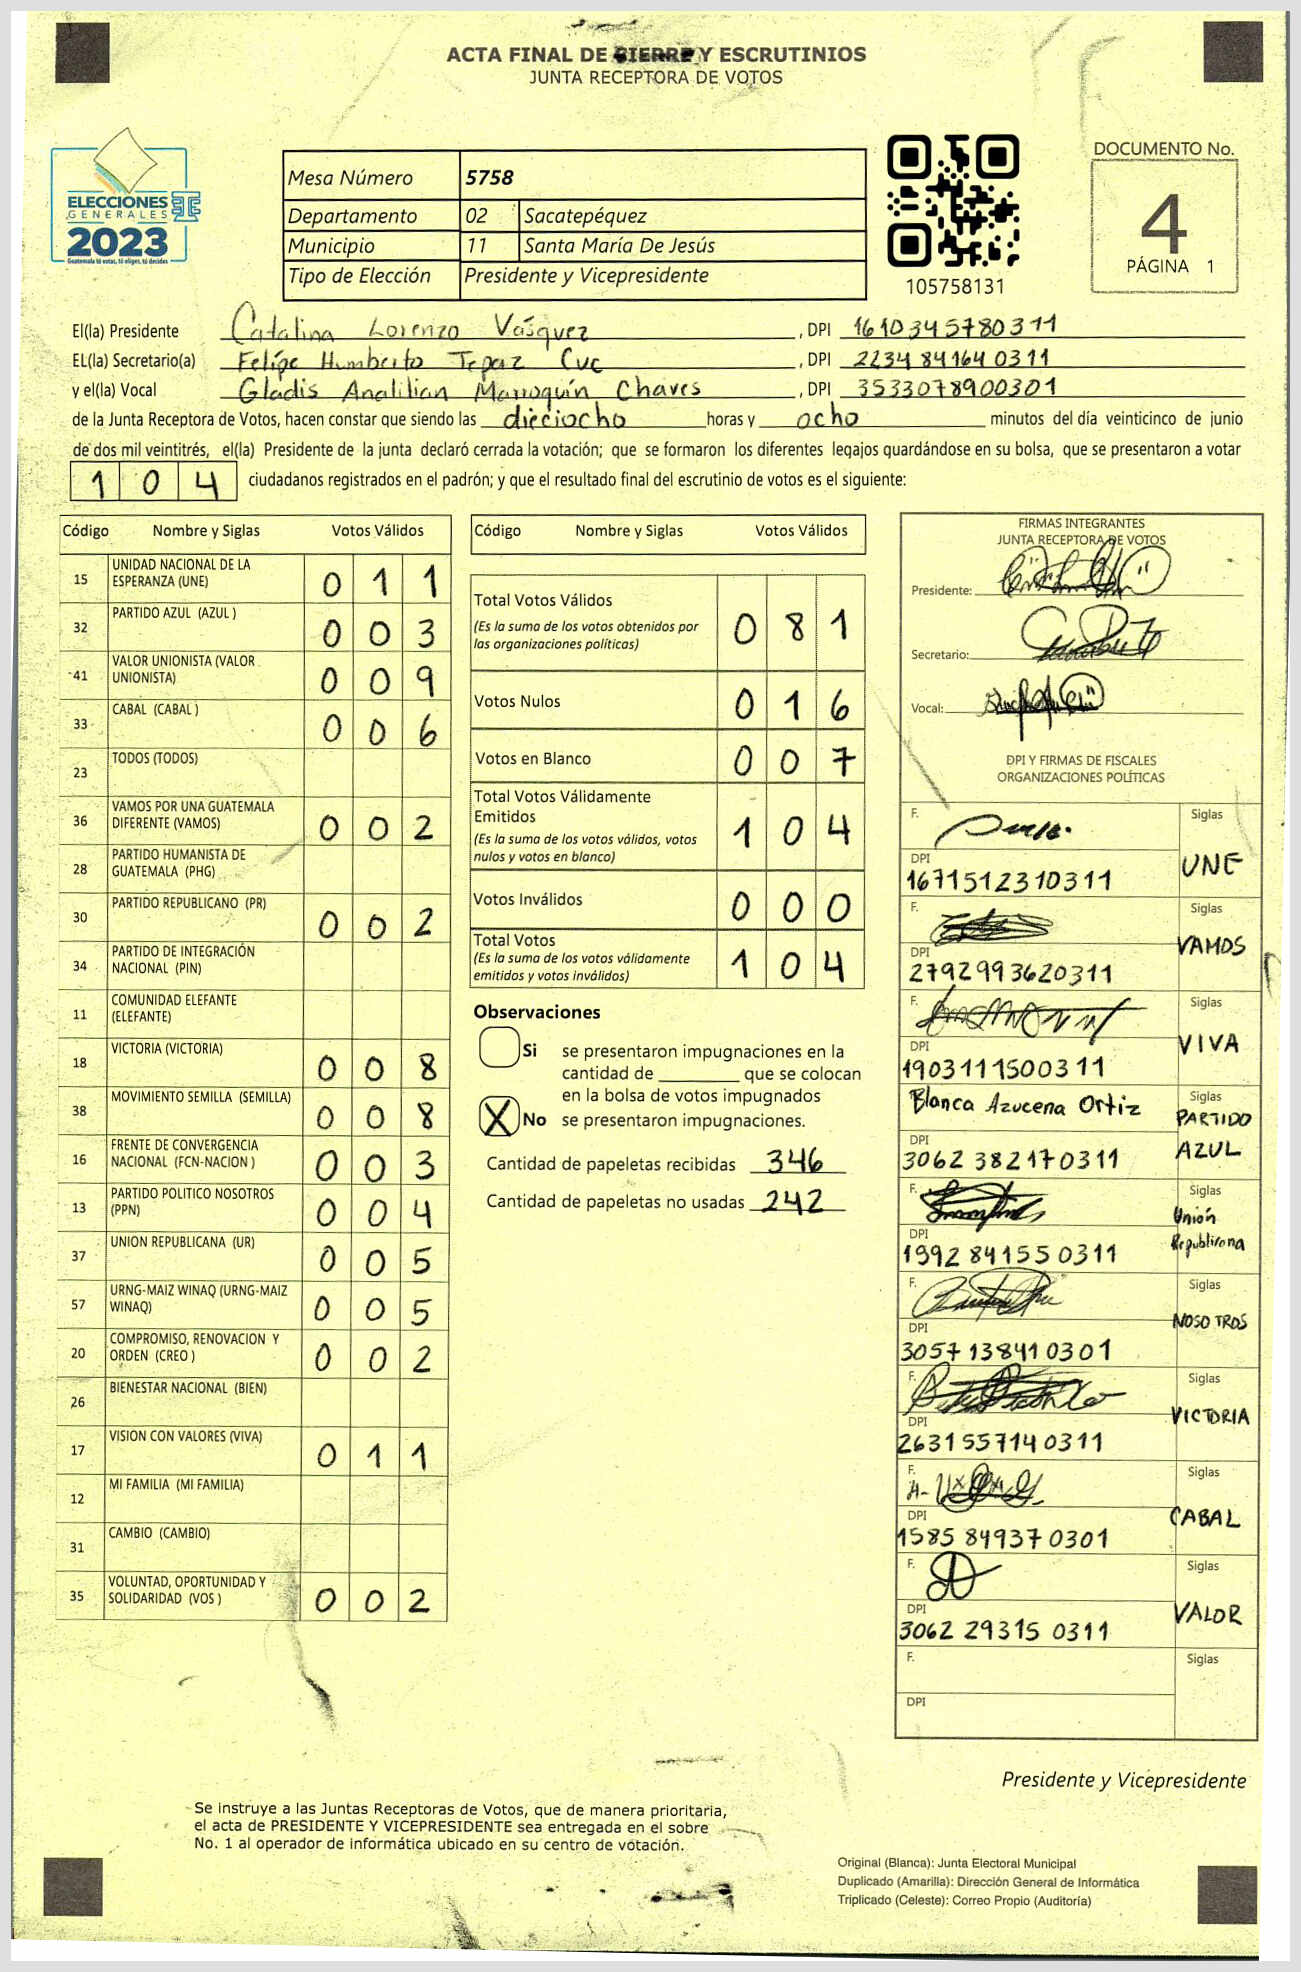 ACTA FINAL DE CIERRE Y ESCRUTINIOS
JUNTA RECEPTORA DE VOTOS
ELECCIONES
GENERALES
2023
Guatemala tú votas, tú eliges, tú decides
Mesa Número 5758
Departamento 02 Sacatepéquez
Municipio 11 Santa María De Jesús
Tipo de Elección Presidente y Vicepresidente
105758131
DOCUMENTO No.
4
PÁGINA 1
El(la) Presidente Catalina Lorenzo Vásquez, DPI 1610345780311
EL(la) Secretario(a) Felipe Humberto Tepaz Cuc, DPI 2234 84164 0311
y el(la) Vocal Gladis Analilian Marroquín Chaves, DPI 3533078900301
de la Junta Receptora de Votos, hacen constar que siendo las dieciocho horas y ocho minutos del día veinticinco de junio
de dos mil veintitrés, el(la) Presidente de la junta declaró cerrada la votación; que se formaron los diferentes legajos guardándose en su bolsa, que se presentaron a votar
104 ciudadanos registrados en el padrón; y que el resultado final del escrutinio de votos es el siguiente:
Código Nombre y Siglas Votos Válidos
15 UNIDAD NACIONAL DE LA ESPERANZA (UNE) 011
32 PARTIDO AZUL (AZUL ) 003
41 VALOR UNIONISTA (VALOR UNIONISTA) 009
33 CABAL (CABAL ) 006
23 TODOS (TODOS)
36 VAMOS POR UNA GUATEMALA DIFERENTE (VAMOS) 002
28 PARTIDO HUMANISTA DE GUATEMALA (PHG)
30 PARTIDO REPUBLICANO (PR) 002
34 PARTIDO DE INTEGRACIÓN NACIONAL (PIN)
11 COMUNIDAD ELEFANTE (ELEFANTE)
18 VICTORIA (VICTORIA) 008
38 MOVIMIENTO SEMILLA (SEMILLA) 008
16 FRENTE DE CONVERGENCIA NACIONAL (FCN-NACION ) 003
13 PARTIDO POLITICO NOSOTROS (PPN) 004
37 UNION REPUBLICANA (UR) 005
57 URNG-MAIZ WINAQ (URNG-MAIZ WINAQ) 005
20 COMPROMISO, RENOVACION Y ORDEN (CREO ) 002
26 BIENESTAR NACIONAL (BIEN)
17 VISION CON VALORES (VIVA) 011
12 MI FAMILIA (MI FAMILIA)
31 CAMBIO (CAMBIO)
35 VOLUNTAD, OPORTUNIDAD Y SOLIDARIDAD (VOS ) 002
Código Nombre y Siglas Votos Válidos
Total Votos Válidos 081
(Es la suma de los votos obtenidos por
las organizaciones políticas)
Votos Nulos 016
Votos en Blanco 007
Total Votos Válidamente
Emitidos 104
(Es la suma de los votos válidos, votos
nulos y votos en blanco)
Votos Inválidos 000
Total Votos 104
(Es la suma de los votos válidamente
emitidos y votos inválidos)
Observaciones
Si se presentaron impugnaciones en la
cantidad de ________ que se colocan
en la bolsa de votos impugnados
X No se presentaron impugnaciones.
Cantidad de papeletas recibidas 346
Cantidad de papeletas no usadas 242
FIRMAS INTEGRANTES
JUNTA RECEPTORA DE VOTOS
Presidente:
Secretario:
Vocal:
DPI Y FIRMAS DE FISCALES
ORGANIZACIONES POLÍTICAS
F. Siglas
DPI UNE
1671512310311
F. Siglas
DPI VAMOS
2792993620311
F. Siglas
DPI VIVA
1903111500311
Blanca Azucena Ortiz Siglas
PARTIDO
DPI AZUL
3062 382170311
F. Siglas
Unión
DPI Republicana
1992 84155 0311
F. Siglas
DPI NOSOTROS
3057 13841 0301
F. Siglas
DPI VICTORIA
2631557140311
F. Siglas
DPI CABAL
1585 84937 0301
F. Siglas
DPI VALOR
3062 29315 0311
F. Siglas
DPI
Presidente y Vicepresidente
Se instruye a las Juntas Receptoras de Votos, que de manera prioritaria,
el acta de PRESIDENTE Y VICEPRESIDENTE sea entregada en el sobre
No. 1 al operador de informática ubicado en su centro de votación.
Original (Blanca): Junta Electoral Municipal
Duplicado (Amarilla): Dirección General de Informática
Triplicado (Celeste): Correo Propio (Auditoría)